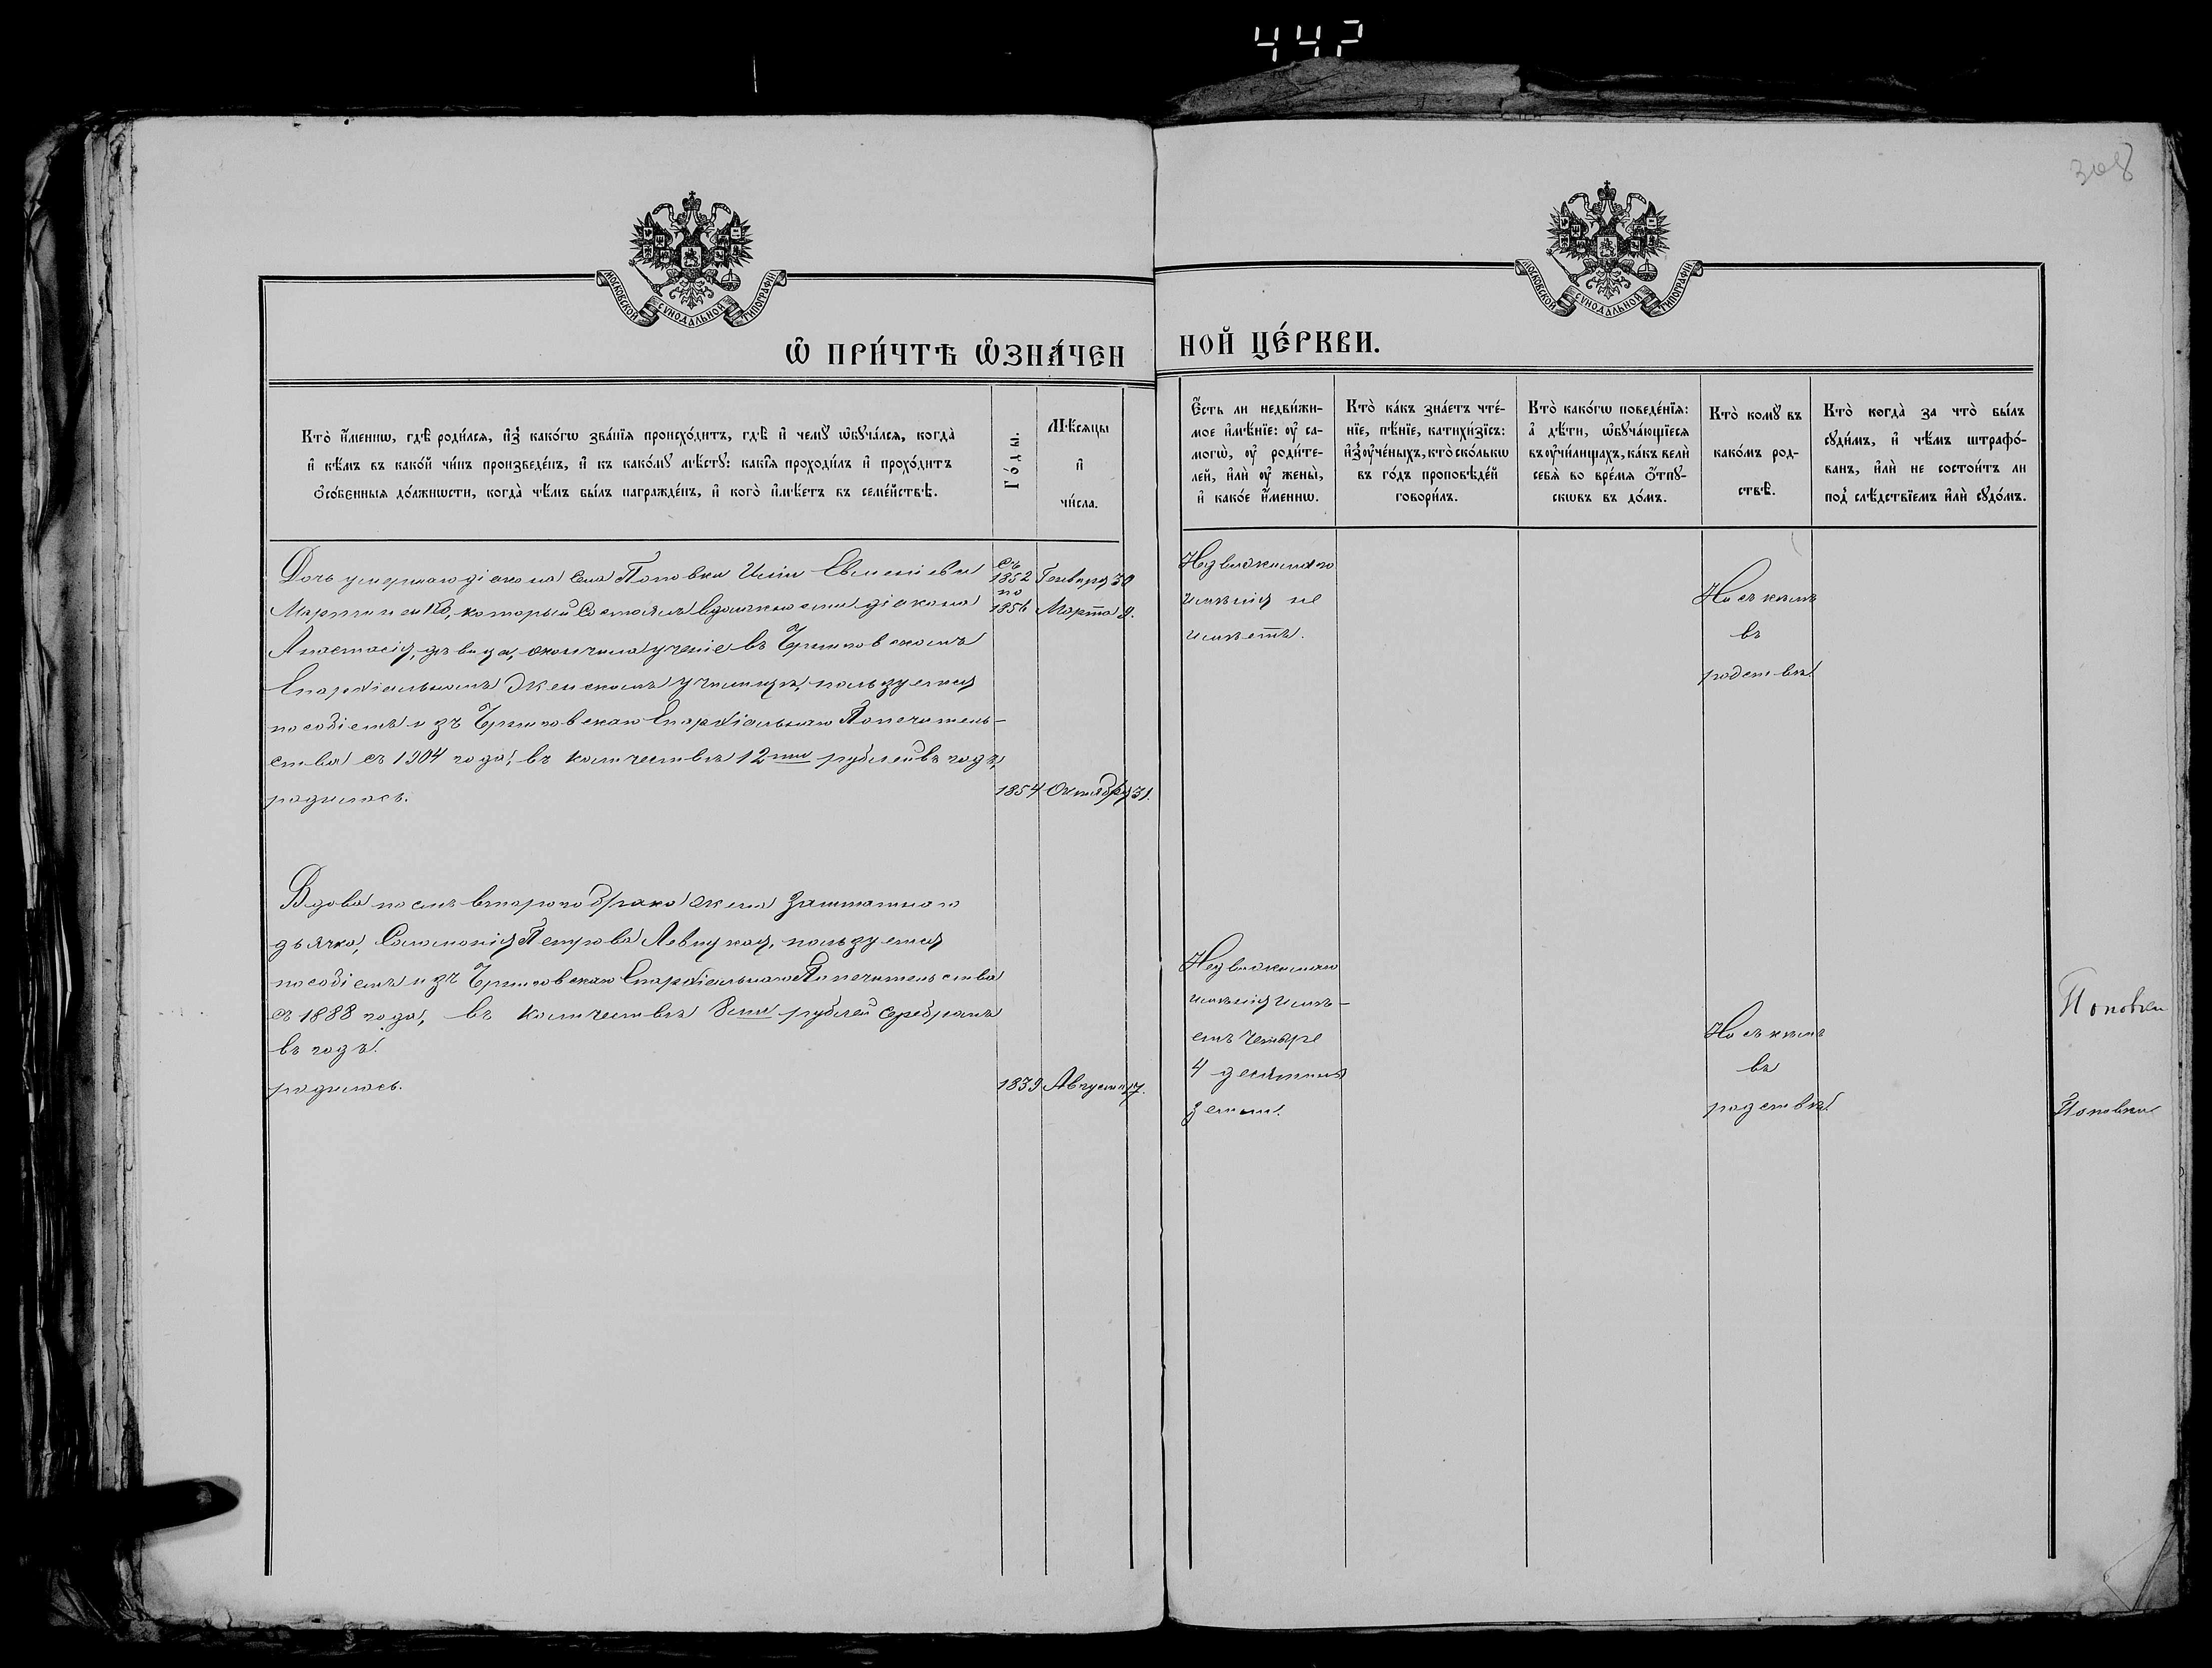 442
308
МОСКОВСКОЙ СѴНОДАЛЬНОЙ ТИПОГРАФІИ
МОСКОВСКОЙ СѴНОДАЛЬНОЙ ТИПОГРАФІИ
Ѡ҆ ПРИ́ЧТѢ Ѡ҆ЗНА́ЧЕН
НОЙ ЦЕ́РКВИ.
Кто̀ и҆́меннѡ, гдѣ̀ роди́лся, и҆з̾ како́гѡ зва́нїѧ происхо́дитъ, гдѣ̀ и҆ чемꙋ̀ ѡ҆бꙋча́лся, когда̀
и҆ кѣ́мъ въ како́й чи́нъ произведе́нъ, и҆ къ како́мꙋ мѣ́стꙋ: какі̑ѧ проходи́лъ и҆ прохо́дитъ
ѻ҆со́бенныѧ до́лжнѡсти, когда̀ чѣ́мъ бы́лъ награжде́нъ, и҆ кого̀ и҆мѣ́етъ въ семе́йствѣ.
Го́ды.
Мѣ́сяцы
и҆
чи́сла.
Є҆́сть ли недви́жи-
мое и҆мѣ́нїе: ᲂу҆ са-
могѡ̀, ᲂу҆ роди́те-
лей, и҆лѝ ᲂу҆ жены̀,
и҆ како́е и҆́меннѡ.
Кто̀ ка́къ зна́етъ чте́-
нїе, пѣ́нїе, катихи́зїсъ:
и҆з̾ᲂу҆че́ныхъ, кто̀ ско́лькѡ
въ го́дъ проповѣ́дей
говори́лъ.
Кто̀ како́гѡ поведе́нїѧ:
а҆ дѣ́ти, ѡ҆бꙋча́ющїесѧ
въ ᲂу҆чи́лищахъ, ка́къ велѝ
себѧ̀ во вре́мѧ ѿпꙋ-
скѡвъ въ до́мъ.
Кто̀ комꙋ̀ въ
како́мъ род-
ствѣ̀.
Кто̀ когда̀ за что̀ бы́лъ
сꙋди́мъ, и҆ чѣ́мъ штрафо́-
ванъ, и҆лѝ не состои́тъ ли
под̾ слѣ́дствїемъ и҆лѝ сꙋдо́мъ.
Дочь умершаго діакона села Поповки Иліи Евменіева съ 1852 Генваря 30
Мартиненко, который состоялъ в должности діакона по 1856 Марта 9.
Анастасія, дѣвица, окончила ученіе въ Черниговскомъ
Епархіальномъ Женскомъ училищѣ, пользуется
пособіемъ изъ Черниговскаго Епархіальнаго Попечитель-
ства съ 1904 года, въ количествѣ 12ти рублей въ годъ,
родилась. 1854 Октября 31.
Недвижимаго
имѣнія не
имѣетъ.
Ни съ кѣмъ
въ
родствѣ.
Вдова послѣ втораго брака жена Заштатнаго
дьячка, Саломонія Петрова Левицкая, пользуется
пособіемъ изъ Черниговскаго Епархіальнаго Попечительства
съ 1888 года, въ количествѣ 8ми рублей серебромъ
въ годъ.
родилась. 1839 Августа 17.
Недвижимаго
имѣнія имѣ-
етъ четыре
4 десятины
земли.
Ни съ кѣмъ
въ
родствѣ.
Поповки
Поповки